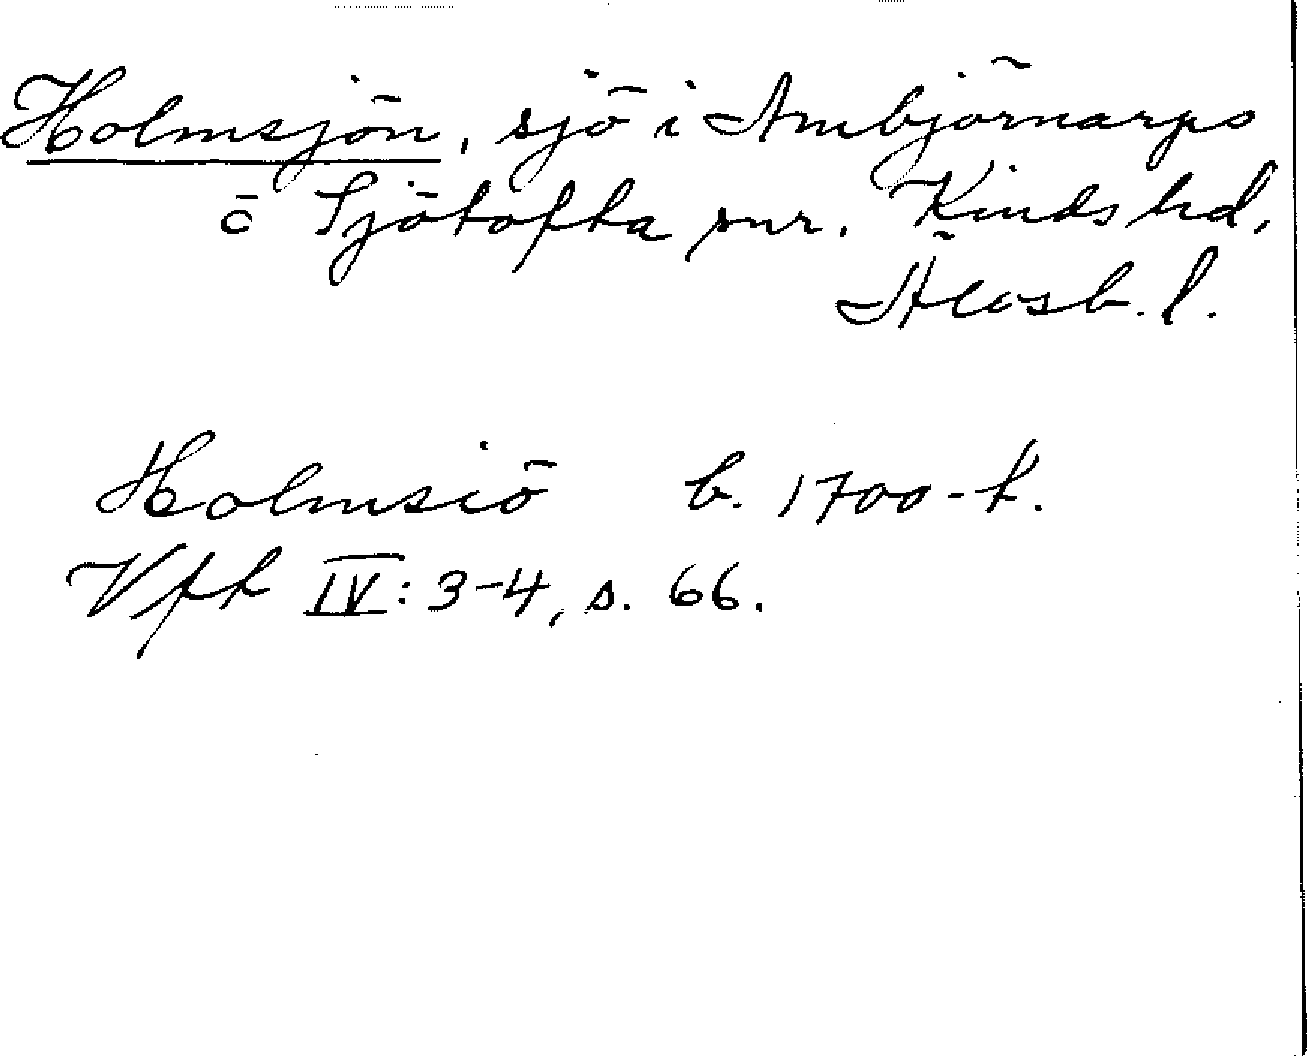 Holmsjön, sjö i Ambjörnarps
o Sjötofta snr. Kinds hd,
Älvsb. l.
Holmsiö b. 1700-t.
IV: 3-4, s. 66.